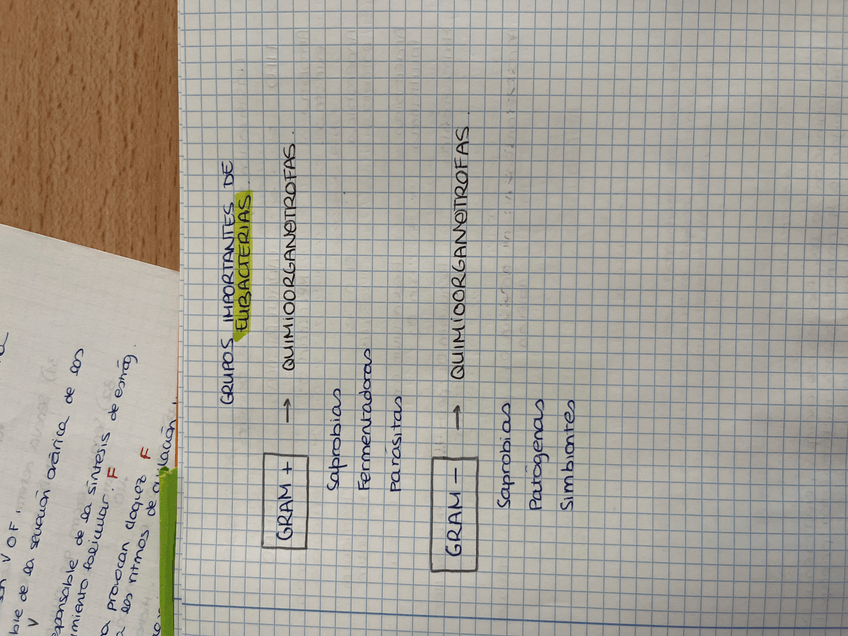 GRUPOS IMPORTANTES DE
EUBACTERIAS.
GRAM + → QUIMIOORGANOTROFAS.
Saprobias
Fermentadoras
Parásitas
GRAM - → QUIMIOORGANOTROFAS.
Saprobias
Patógenas
Simbiontes
V O F
de la secreción ovárica de los
V
responsable de la síntesis de estróg.
folicular. F
provocan
los ritmos de F